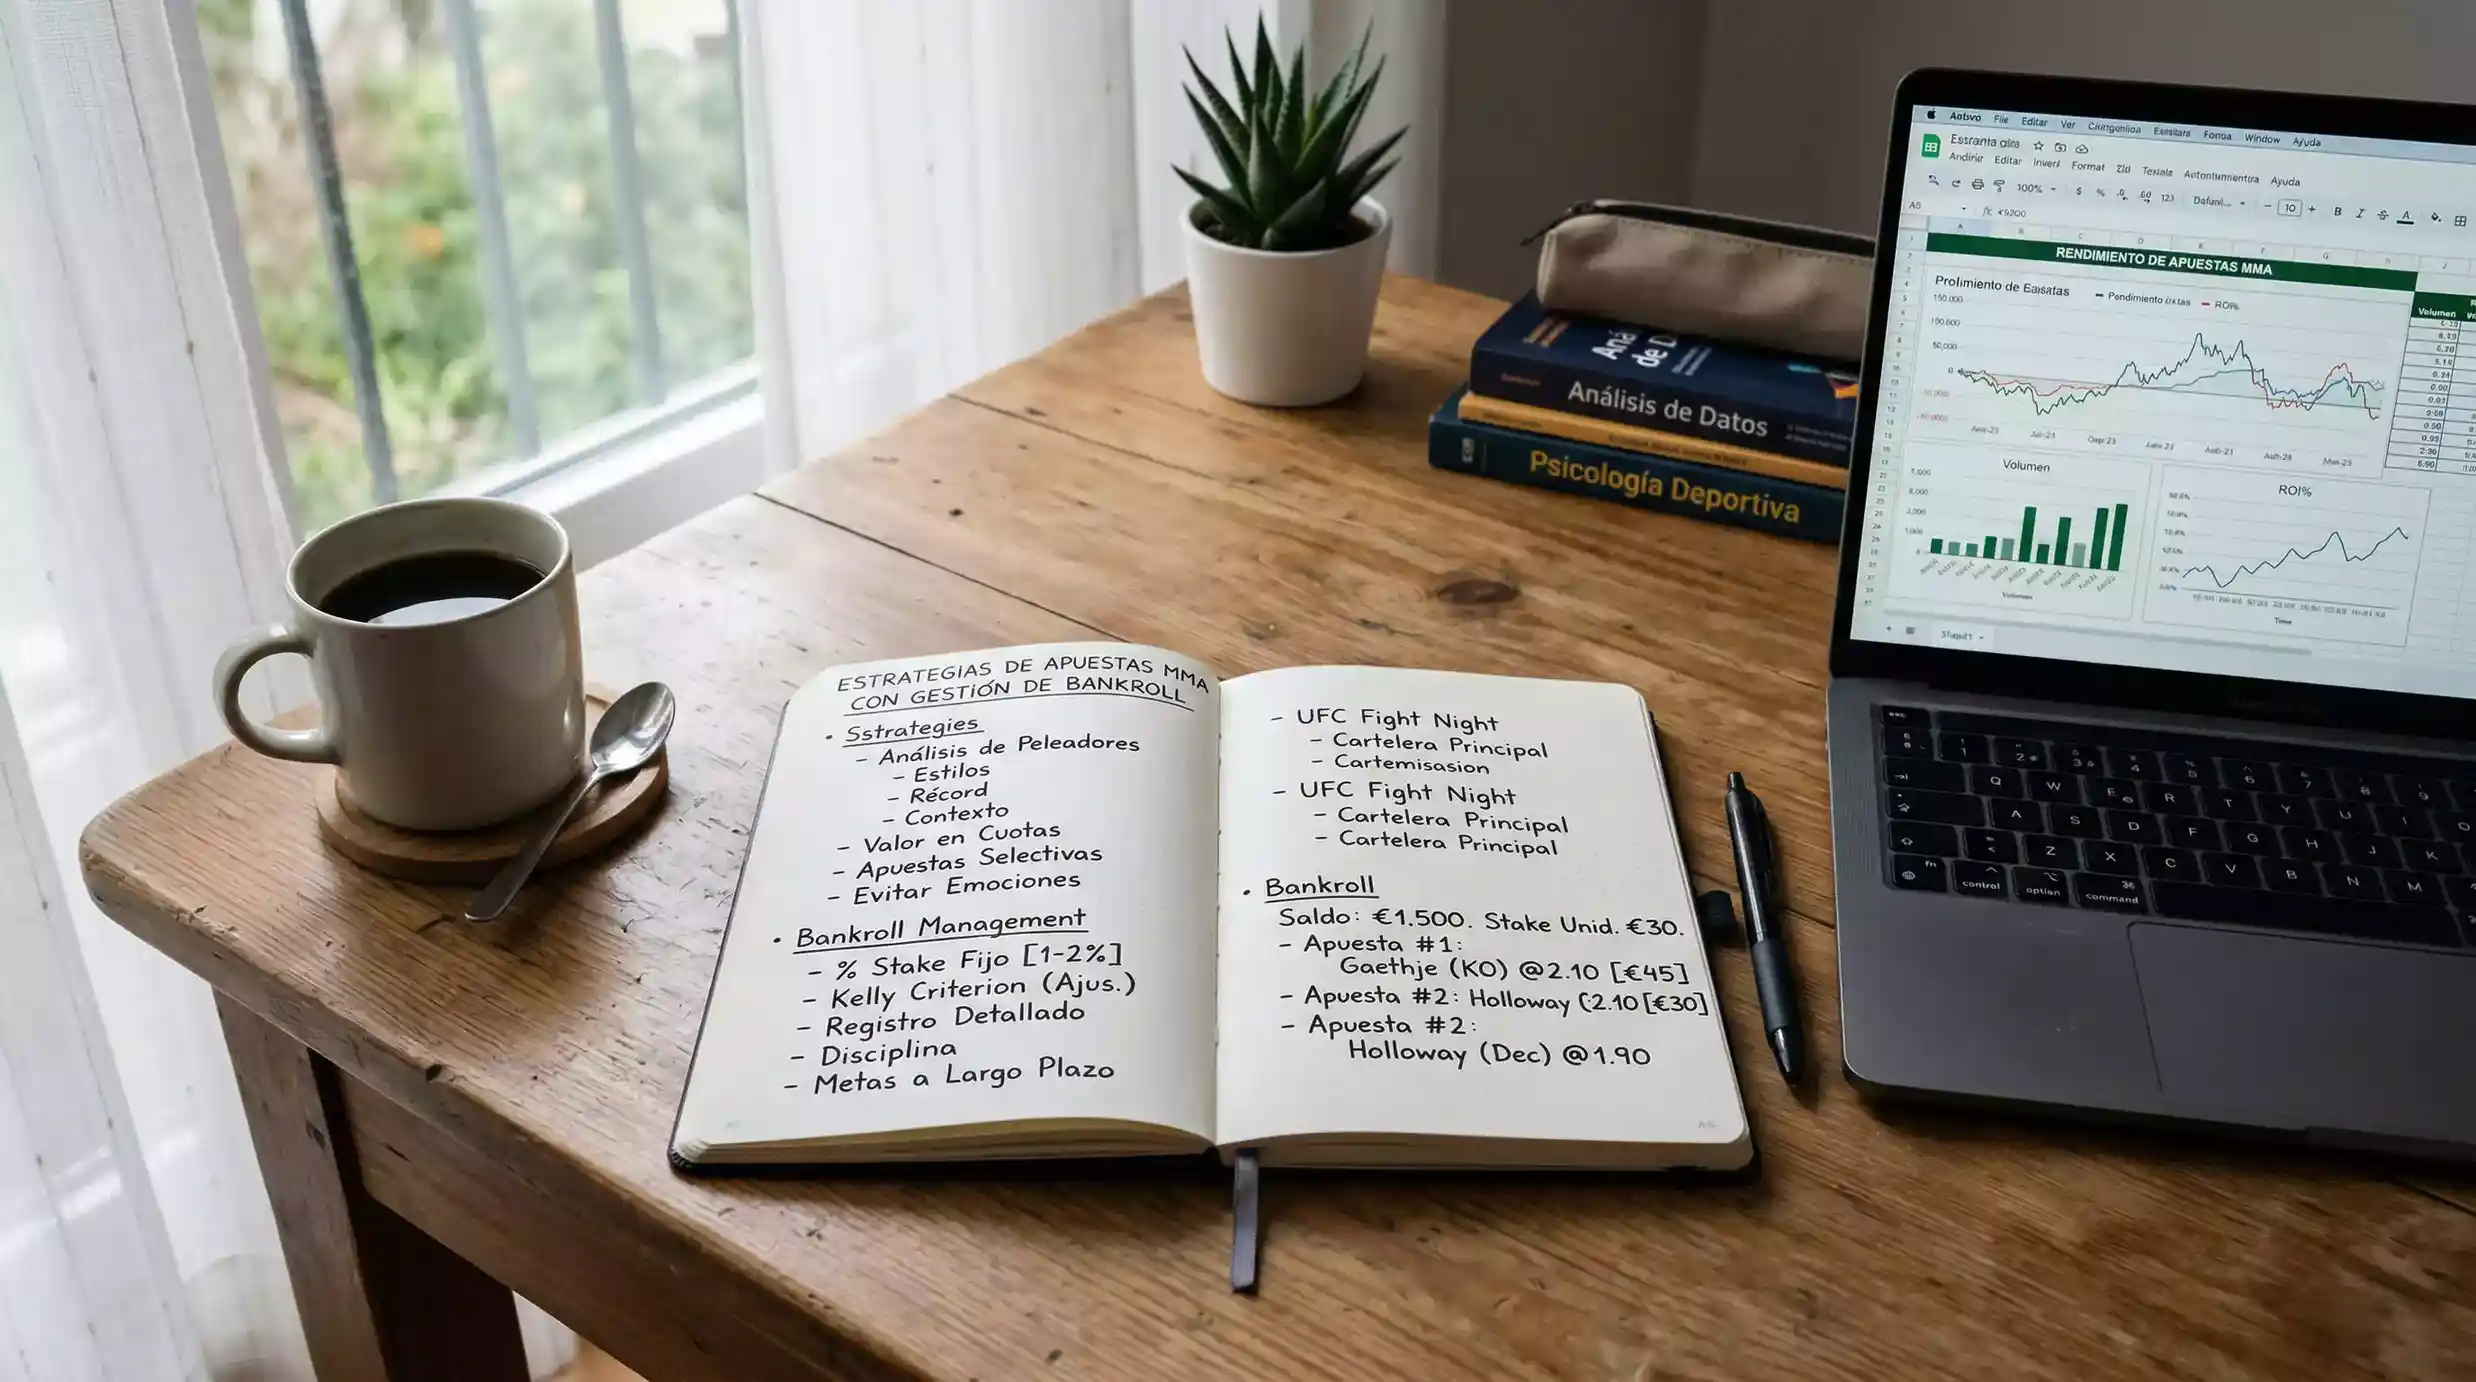 ESTRATEGIAS DE APUESTAS MMA
CON GESTIÓN DE BANKROLL
• Sstrategies
- Análisis de Peleadores
- Estilos
- Récord
- Contexto
- Valor en Cuotas
- Apuestas Selectivas
- Evitar Emociones
• Bankroll Management
- % Stake Fijo [1-2%]
- Kelly Criterion (Ajus.)
- Registro Detallado
- Disciplina
- Metas a Largo Plazo
- UFC Fight Night
- Cartelera Principal
- Cartemisasion
- UFC Fight Night
- Cartelera Principal
- Cartelera Principal
• Bankroll
Saldo: €1.500. Stake Unid. €30.
- Apuesta #1:
Gaethje (KO) @2.10 [€45]
- Apuesta #2: Holloway (:2.10 [€30]
- Apuesta #2:
Holloway (Dec) @1.90
Análisis de Datos
Psicología Deportiva
File Editar Ver Window Ayuda
Editar Format Ayuda
100% $ % 123 10 B I S A
RENDIMIENTO DE APUESTAS MMA
ROI%
150.000
50,000
0
Volumen
Volumen
ROI%
Q W E R T Y U I O
A S D F G H J K
Z X C V B N M
fn control option command